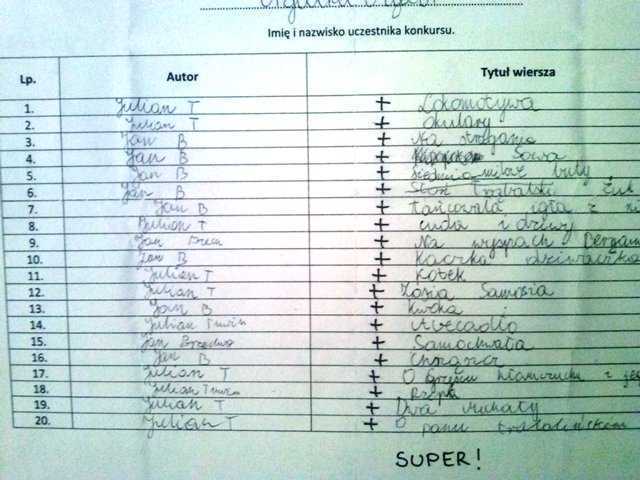 Imię i nazwisko uczestnika konkursu.
Lp. Autor Tytuł wiersza
1. Julian T + Lokomotywa
2. Julian T + okulary
3. Jan B + Na straganie
4. Jan B + Sowa
5. Jan B + Siedmiomilowe buty
6. Jan B + Słoń Trąbalski
7. Jan B + tańcowała igła z ni
8. Julian T + cuda i dziwy
9. Jan Brzech + Na wyspach Bergam
10. Jan B + Kaczka dziwaczka
11. Julian T + Kotek
12. Julian T + Zosia Samosia
13. Jan B + Kwoka
14. Julian Tuwim +
15. Jan Brzechwa + Samochwała
16. Jan B + Chrzan
17. Julian T + O Grzesiu kłamczuchu i jeg
18. Julian Tuwim + Rzepka
19. Julian T + Dwa Michały
20. Julian T + O panu Tralalińskim
SUPER!